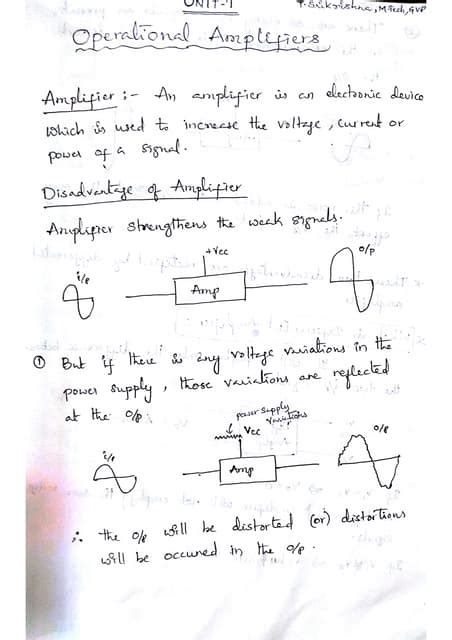 UNIT-1
P. Srikrishna, M.Tech, GVP
Operational Amplifiers
Amplifier :- An amplifier is an electronic device
which is used to increase the voltage, current or
power of a signal.
Disadvantage of Amplifier
Amplifier strengthens the weak signals.
+Vcc
i/p
Amp
o/p
① But if there is any voltage variations in the
power supply, those variations are reflected
at the o/p.
power supply
variations
Vcc
i/p
Amp
o/p
∴ the o/p will be distorted (or) distortions
will be occured in the o/p.